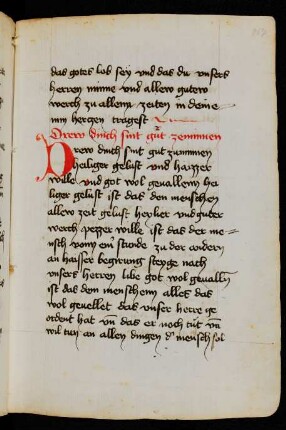 das gotes lob sey vnd das du vnsers
herren minne vnd aller guter
werch zu allem zeiten in deine
nm herczen tragest
Drew dinch sint gut zenmmen
Drew dinch sint gut zunmmen
heiliger gelust vnd hayzzer
wille vnd got wol geuallenn hei
liger gelust ist das den menschen
aller zeit gelust heyliger vnd guter
werch pezzer wille ist das der me
nsch vonn ein stunde zu der andern
an haiser begirung steyge nach
vnsers herren libe got wol geualln
ist das dem menschenn alles das
wol geuellet das vnser herre ge
ordent hat vnd das er noch tut vn
wil tun an allen dingen d mensch sol